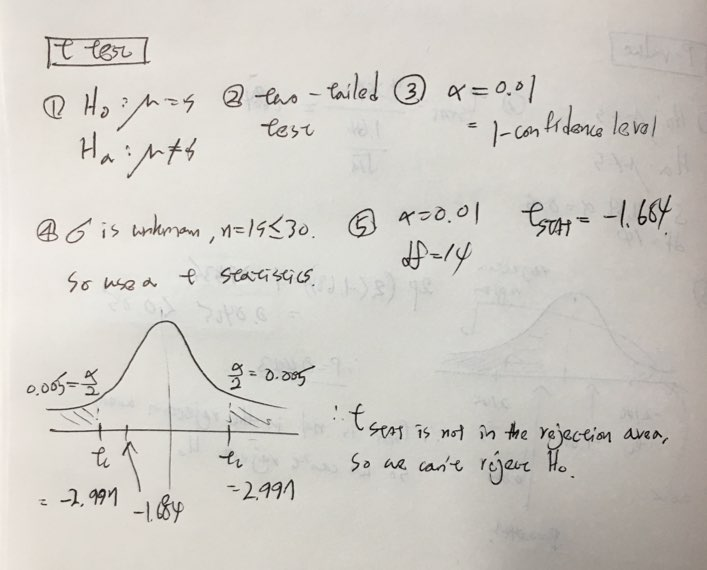 t test
① H₀ : μ = 5
Hₐ : μ ≠ 5
② two-tailed
test
③ α = 0.01
= 1-confidence level
④ σ is unknown, n=15≤30.
So use a t statistics
⑤ α=0.01
df=14
t_STAT = -1.684
0.005 = α/2
α/2 = 0.005
t_c
t_c
= -2.997
-1.684
= 2.997
∴ t_STAT is not in the rejection area,
so we can't reject H₀.